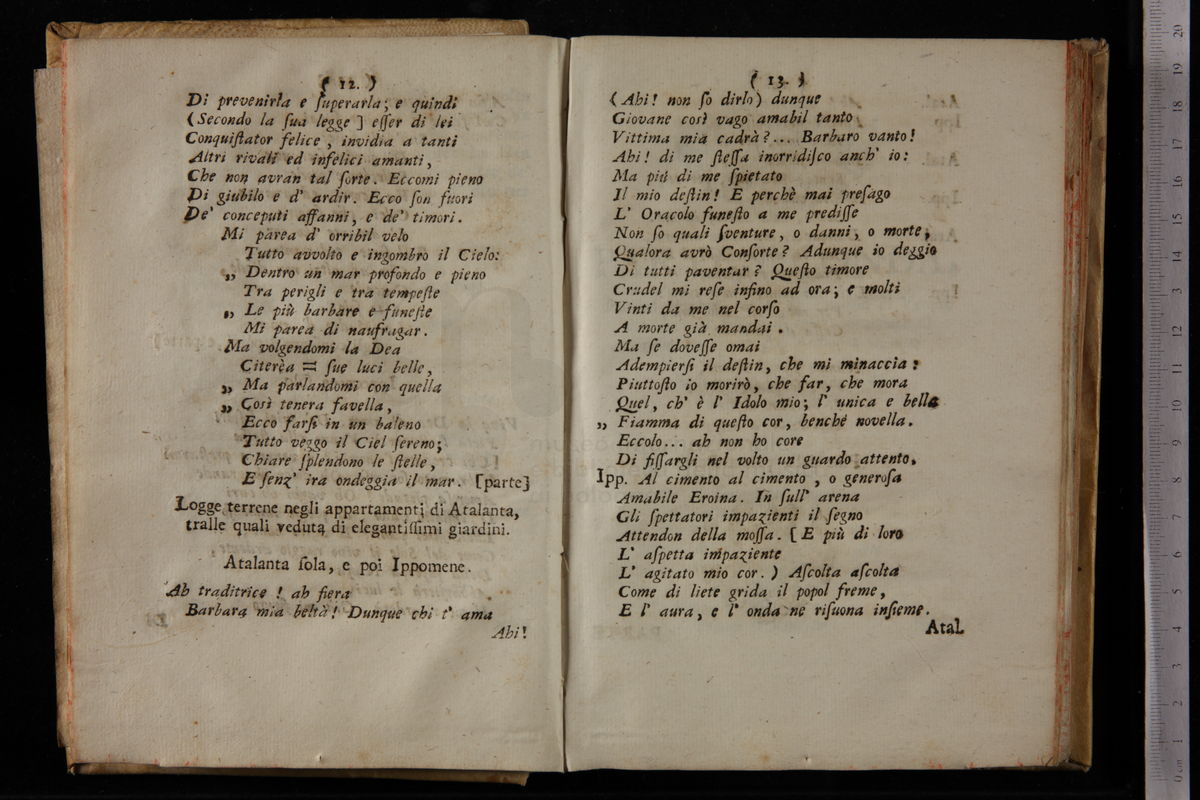 ( 12. )
Di prevenirla e ſuperarla; e quindi
(Secondo la ſua legge ] eſſer di lei
Conquiſtator felice, invidia a tanti
Altri rivali ed infelici amanti,
Che non avran tal ſorte. Eccomi pieno
Di giubilo e d' ardir. Ecco ſon fuori
De' conceputi affanni, e de' timori.
Mi parea d' orribil velo
Tutto avvolto e ingombro il Cielo:
„ Dentro un mar profondo e pieno
Tra perigli e tra tempeſte
„ Le più barbare e funeſte
Mi parea di naufragar.
Ma volgendomi la Dea
Citerèa = ſue luci belle,
„ Ma parlandomi con quella
„ Così tenera favella,
Ecco farſi in un baleno
Tutto veggo il Ciel ſereno;
Chiare ſplendono le ſtelle,
E ſenz' ira ondeggia il mar. [parte]
Logge terrene negli appartamenti di Atalanta,
tralle quali veduta di elegantiſſimi giardini.
Atalanta ſola, e poi Ippomene.
Ah traditrice ! ah fiera
Barbara mia beltà! Dunque chi t' ama
Ahi!
( 13. )
(Ahi! non ſo dirlo) dunque
Giovane così vago amabil tanto
Vittima mia cadrà?... Barbaro vanto!
Ahi! di me ſteſſa inorridiſco anch' io:
Ma più di me ſpietato
Il mio deſtin! E perchè mai preſago
L' Oracolo funeſto a me prediſſe
Non ſo quali ſventure, o danni, o morte,
Qualora avrò Conſorte? Adunque io deggio
Di tutti paventar? Queſto timore
Crudel mi reſe infino ad ora; e molti
Vinti da me nel corſo
A morte già mandai.
Ma ſe doveſſe omai
Adempierſi il deſtin, che mi minaccia:
Piuttoſto io morirò, che far, che mora
Quel, ch' è l' Idolo mio; l' unica e bella
„ Fiamma di queſto cor, benché novella.
Eccolo... ah non ho core
Di fiſſargli nel volto un guardo attento.
Ipp. Al cimento al cimento, o generoſa
Amabile Eroina. In ſull' arena
Gli ſpettatori impazienti il ſegno
Attendon della moſſa. [ E più di loro
L' aſpetta impaziente
L' agitato mio cor. ) Aſcolta aſcolta
Come di liete grida il popol freme,
E l' aura, e l' onda ne riſuona inſieme.
Atal.
0 cm 1 2 3 4 5 6 7 8 9 10 11 12 13 14 15 16 17 18 19 20